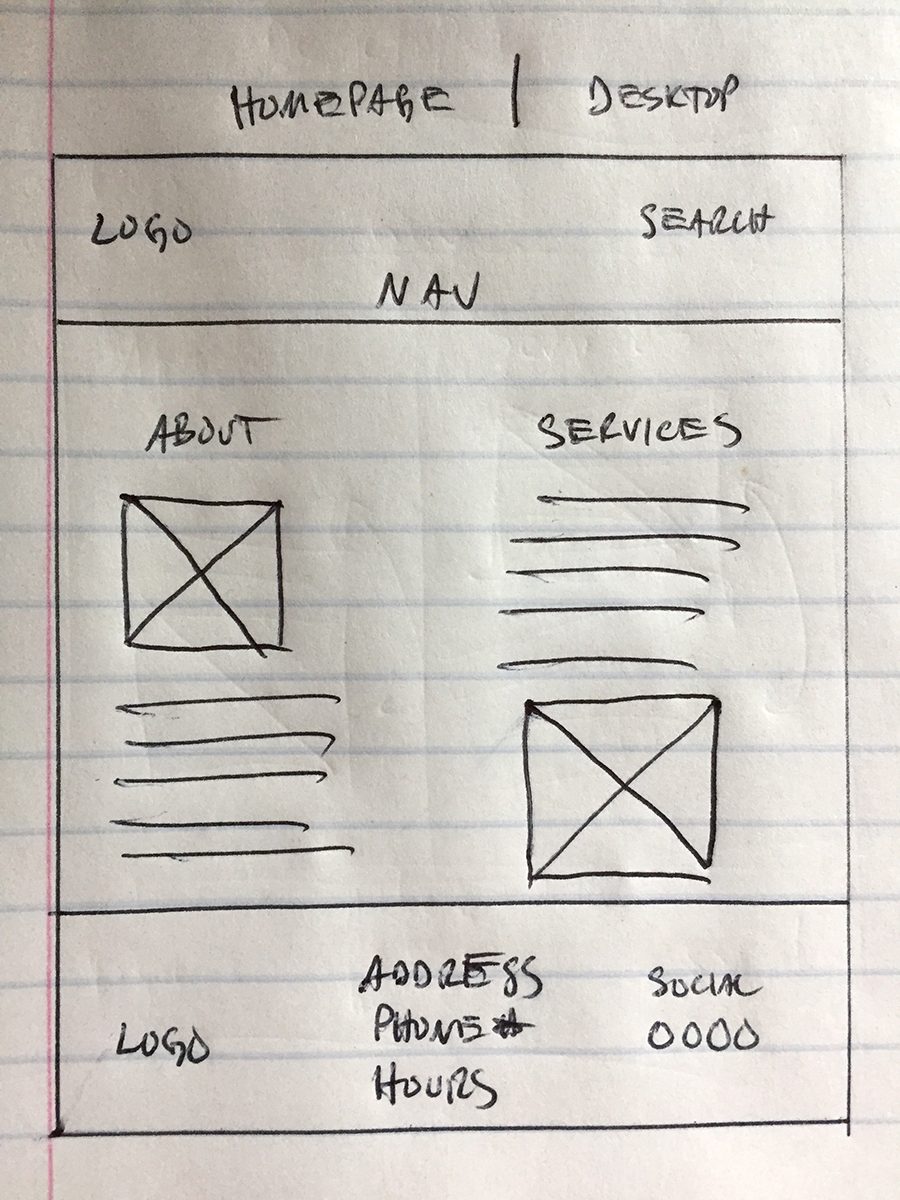 HOMEPAGE | DESKTOP
LOGO SEARCH
NAV
ABOUT SERVICES
ADDRESS
PHONE#
HOURS
LOGO
SOCIAL
OOOO